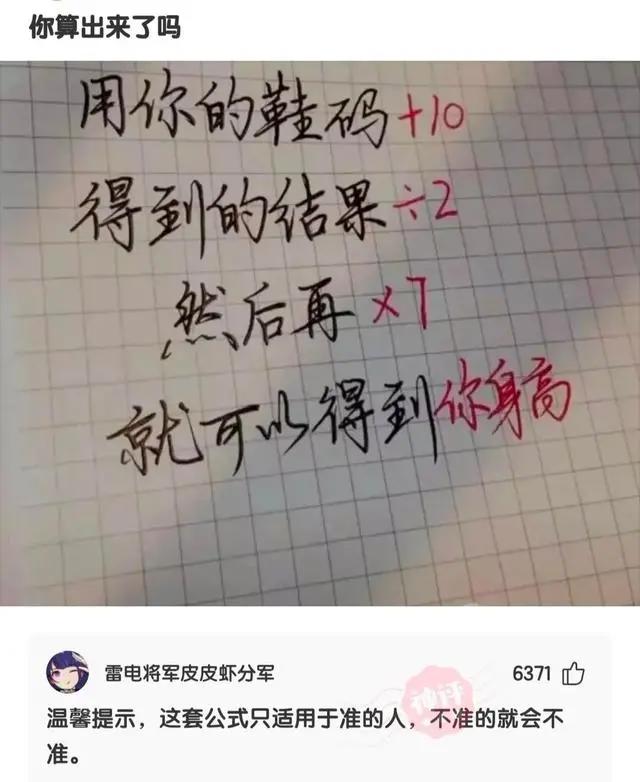 你算出来了吗
用你的鞋码+10
得到的结果÷2
然后再×7
就可以得到你身高
雷电将军皮皮虾分军
6371
神评
温馨提示，这套公式只适用于准的人，不准的就会不
准。